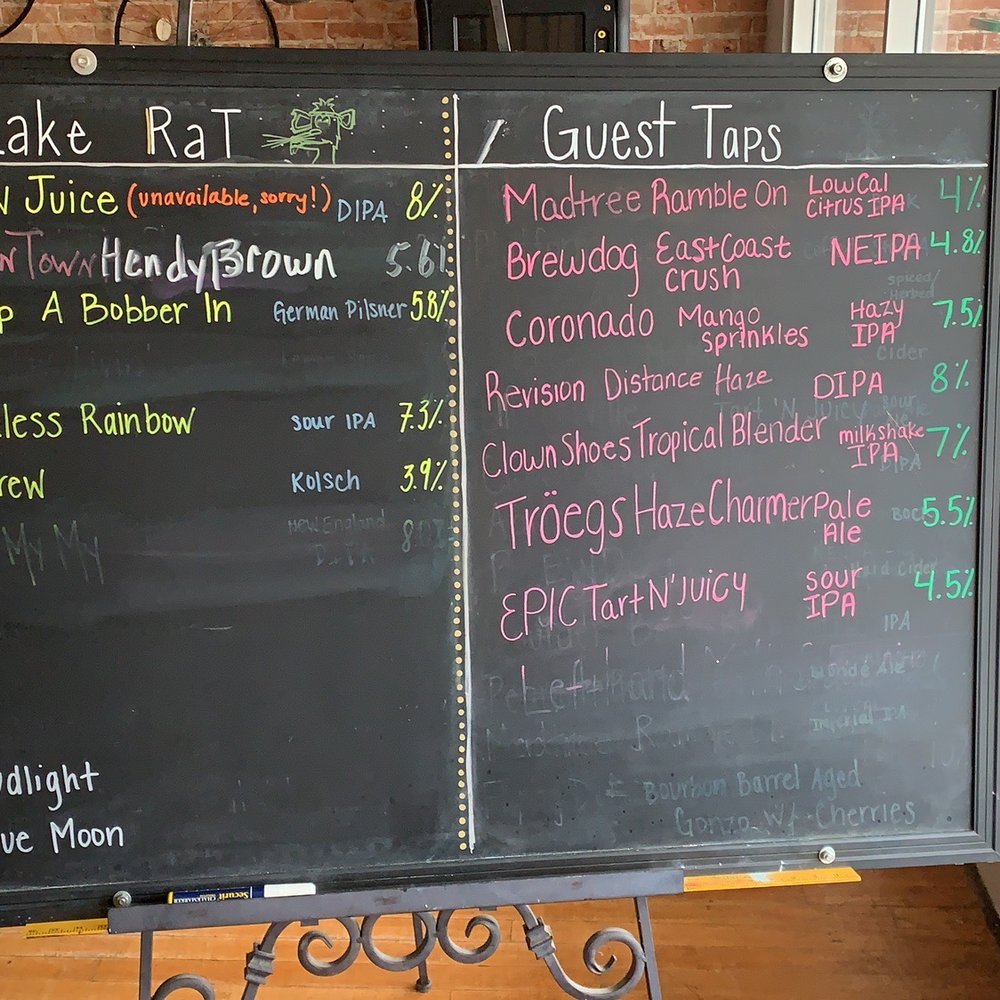 ake RaT
Juice (unavailable, sorry!) DIPA 8%
nTown Hendy Brown 5.6%
p A Bobber In German Pilsner 5.8%
less Rainbow sour IPA 7.3%
rew Kolsch 3.9%
My My New England DIPA 8.0%
dlight
ue Moon
Guest Taps
Madtree Ramble On Low Cal Citrus IPA 4%
Brewdog East Coast Crush NEIPA 4.8%
Coronado Mango Sprinkles Hazy IPA 7.5%
Revision Distance Haze DIPA 8%
Clown Shoes Tropical Blender milkshake IPA 7%
Tröegs Haze Charmer Pale Ale 5.5%
EPIC Tart N' Juicy sour IPA 4.5%
Left Hand
Imperial IPA
Bourbon Barrel Aged
Gonzo W/ Cherries
Securit